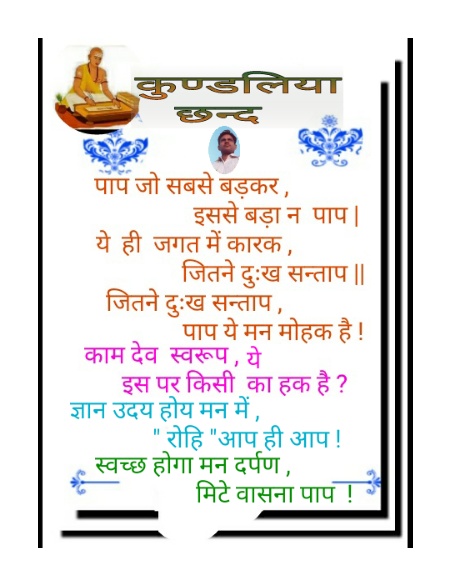 कुण्डलिया
छन्द
पाप जो सबसे बड़कर ,
इससे बड़ा न पाप |
ये ही जगत में कारक ,
जितने दुःख सन्ताप ||
जितने दुःख सन्ताप ,
पाप ये मन मोहक है !
काम देव स्वरूप , ये
इस पर किसी का हक है ?
ज्ञान उदय होय मन में ,
" रोहि "आप ही आप !
स्वच्छ होगा मन दर्पण ,
मिटे वासना पाप !